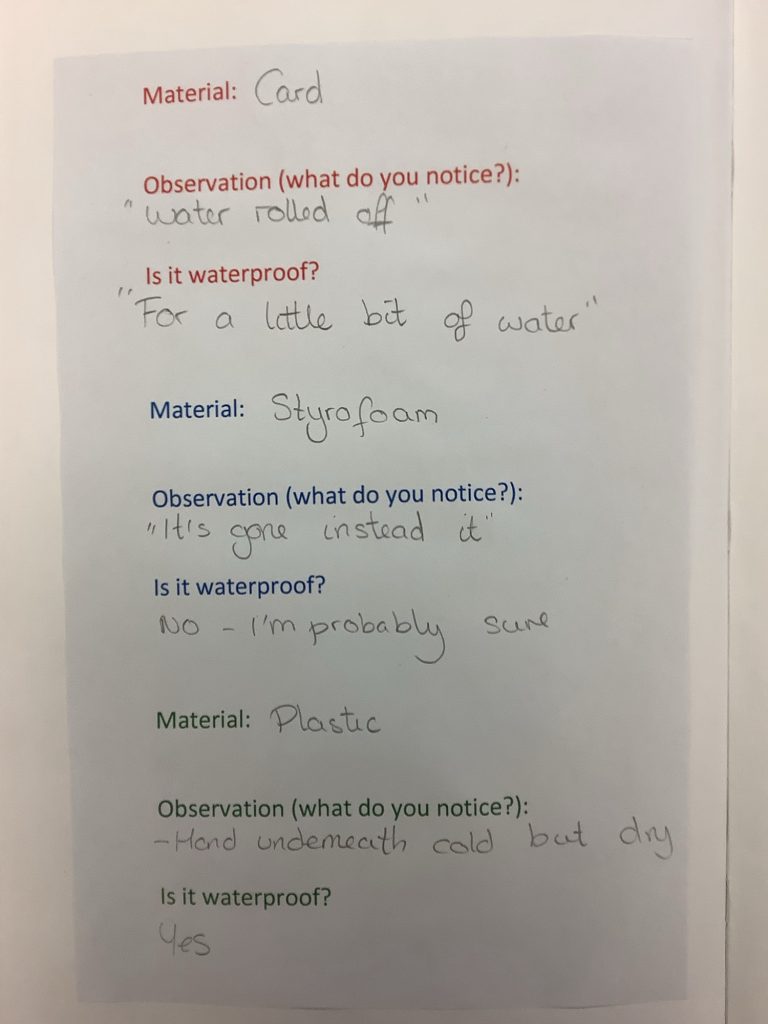 Material: Card
Observation (what do you notice?):
"Water rolled off"
Is it waterproof?
"For a little bit of water"
Material: Styrofoam
Observation (what do you notice?):
"It's gone instead it"
Is it waterproof?
No - I'm probably sure
Material: Plastic
Observation (what do you notice?):
- Hand underneath cold but dry
Is it waterproof?
Yes